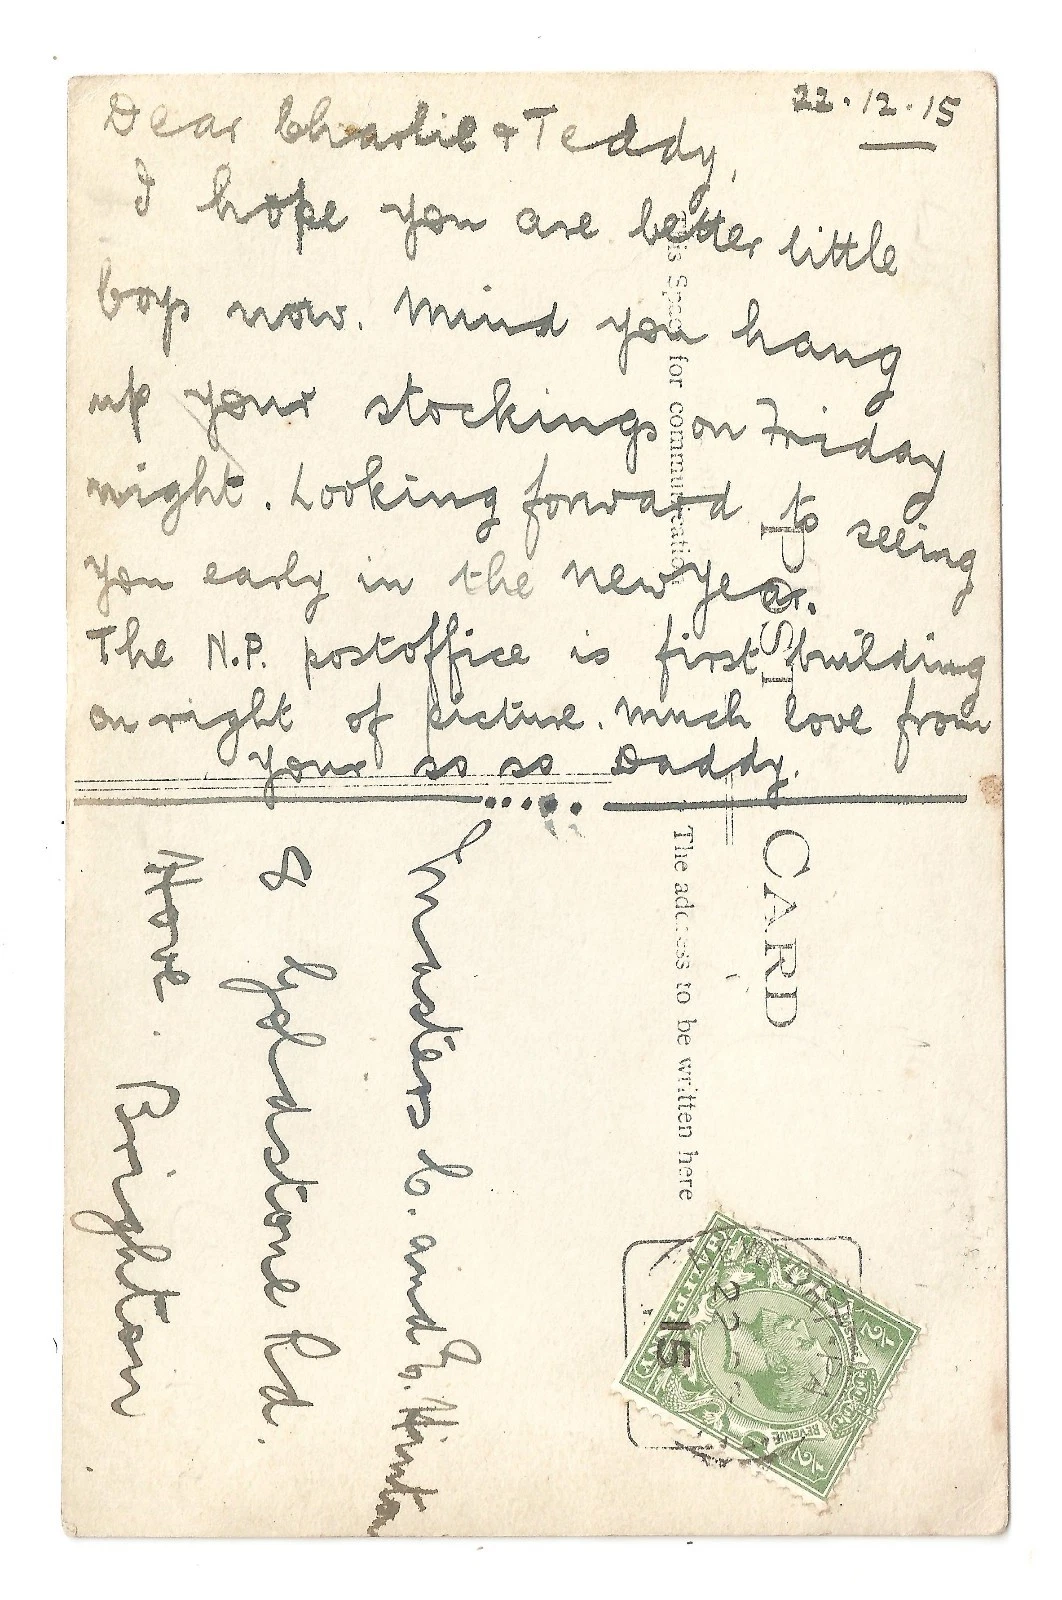 22.12.15
Dear Charlie & Teddy,
I hope you are better little
boys now. Mind you hang
up your stockings on Friday
night. Looking forward to seeing
you early in the new year.
The N.P. postoffice is first building
on right of picture. Much love from
your so so Daddy.
This Space for communication.
POST CARD
The address to be written here
Masters C. and E. Hinton
8 Goldstone Rd.
Hove. Brighton
NEWPORT-PA
22 DE
15
POSTAGE
REVENUE
1/2
1/2